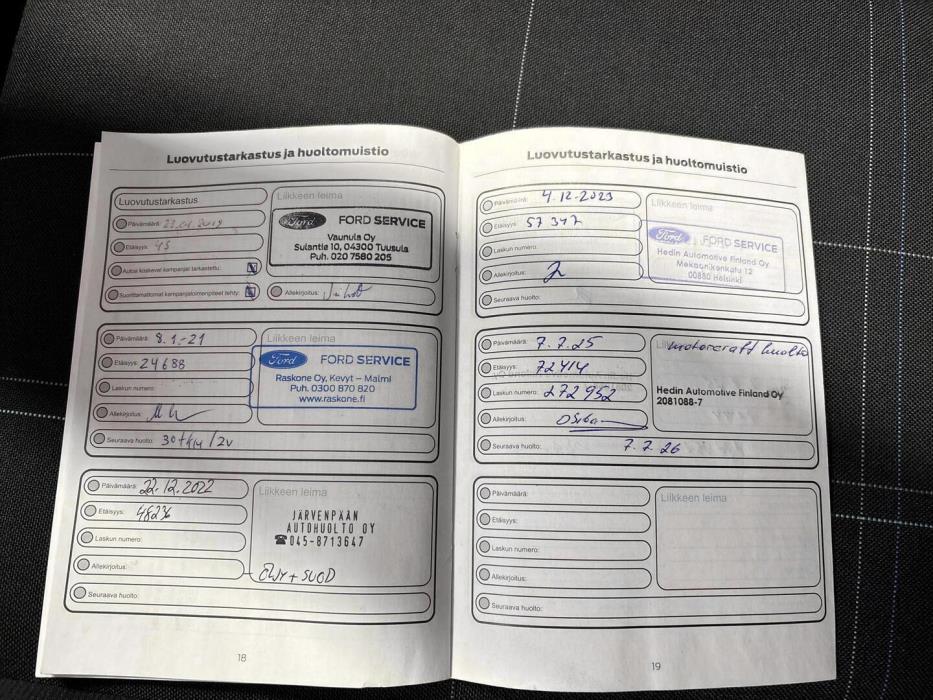 Luovutustarkastus ja huoltomuistio
Luovutustarkastus
Päivämäärä:
Etäisyys: 45
Autoa koskevat kampanjat tarkastettu:
Suorittamattomat kampanjatoimenpiteet tehty:
Liikkeen leima
Ford FORD SERVICE
Vaunula Oy
Sulantie 10, 04300 Tuusula
Puh. 020 7580 205
Allekirjoitus:
Päivämäärä: 8.1.-21
Etäisyys: 24688
Laskun numero:
Allekirjoitus:
Seuraava huolto: 30tkm/2v
Liikkeen leima
Ford FORD SERVICE
Raskone Oy, Kevyt – Malmi
Puh. 0300 870 820
www.raskone.fi
Päivämäärä: 22.12.2022
Etäisyys: 48236
Laskun numero:
Allekirjoitus:
Seuraava huolto:
Liikkeen leima
JÄRVENPÄÄN
AUTOHUOLTO OY
☎045-8713647
ÖLJY + SUOD
18
Luovutustarkastus ja huoltomuistio
Päivämäärä: 4.12-2023
Etäisyys: 57347
Laskun numero:
Allekirjoitus:
Seuraava huolto:
Liikkeen leima
Ford FORD SERVICE
Hedin Automotive Finland Oy
Mekaanikonkatu 12
00880 Helsinki
Päivämäärä: 7.7.25
Etäisyys: 72414
Laskun numero: 272952
Allekirjoitus:
Seuraava huolto: 7.7.26
motorcraft huolto
Hedin Automotive Finland Oy
2081088-7
Päivämäärä:
Etäisyys:
Laskun numero:
Allekirjoitus:
Seuraava huolto:
Liikkeen leima
19